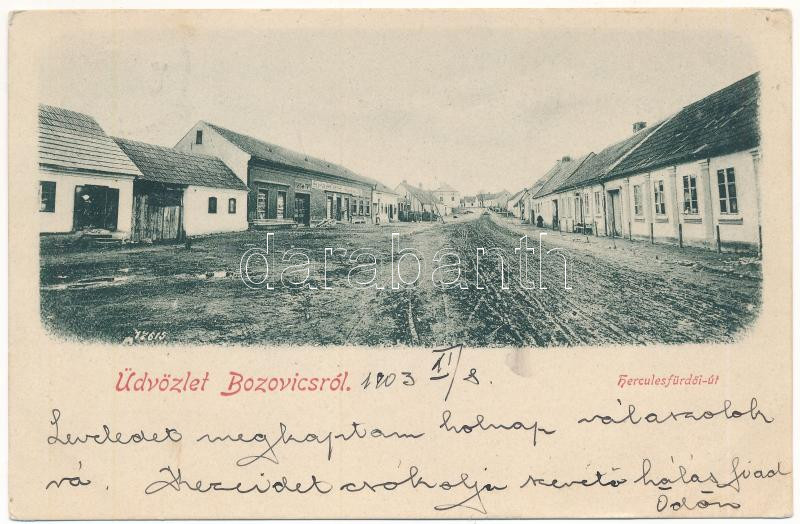 darabanth
17615
Üdvözlet Bozovicsról. 1903 II/8.
Herculesfürdői-út
Leveledet megkaptam holnap válaszolok
rá. Kezeidet csókolja szerető hálás fiad
Ödön